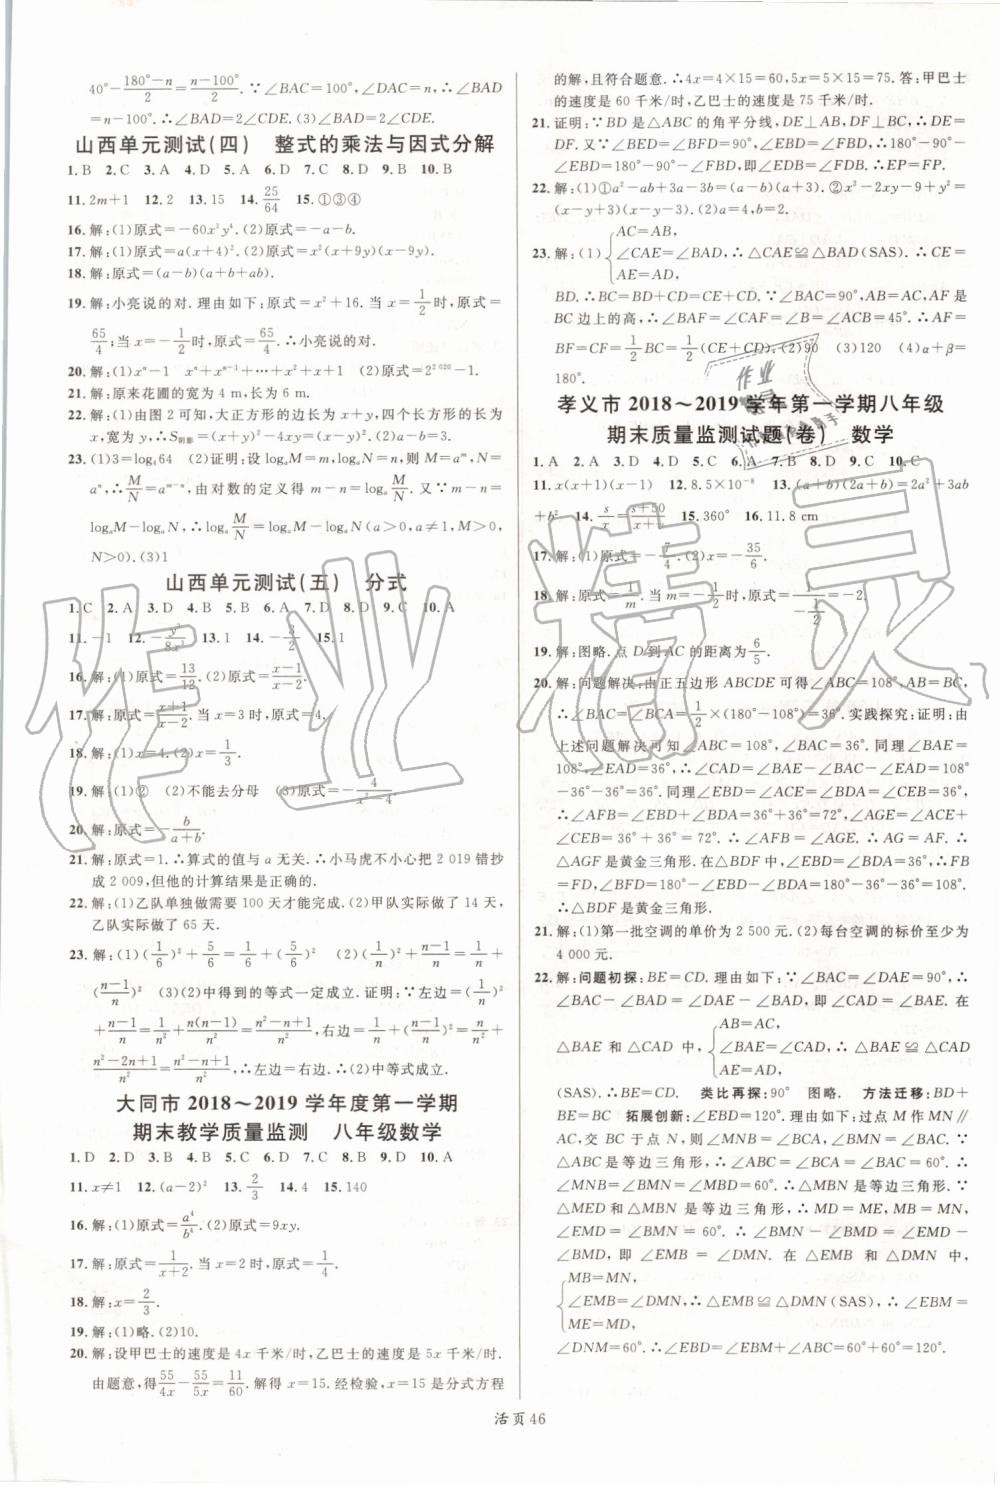 40°−(180°−n)/2=(n−100°)/2. ∵∠BAC=100°,∠DAC=n,∴∠BAD=n−100°. ∴∠BAD=2∠CDE. (3)∠BAD=2∠CDE.
山西单元测试(四) 整式的乘法与因式分解
1. B 2. C 3. A 4. D 5. A 6. D 7. C 8. A 9. B 10. B
11. 2m+1 12. 2 13. 15 14. 25/64 15. ①③④
16. 解:(1)原式=−60x³y⁴. (2)原式=−a−b.
17. 解:(1)原式=a(x+4)². (2)原式=x²(x+9y)(x−9y).
18. 解:原式=(a−b)(a+b+c).
19. 解:小亮说的对. 理由如下:原式=x²+16. 当 x=1/2时,原式=
65/4;当 x=−1/2时,原式=65/4. ∴小亮说的对.
20. 解:(1)xⁿ−1 xⁿ+xⁿ⁻¹+…+x²+x+1 (2)原式=2²⁰²⁰−1.
21. 解:原来花圃的宽为 4 m,长为 6 m.
22. 解:(1)由图 2 可知,大正方形的边长为 x+y,四个长方形的长为
x,宽为 y,∴S阴影=(x+y)²−4xy=(x−y)². (2)4
23. (1)3=log₄64 (2)证明:设 logₐM=m,logₐN=n,则 M=aᵐ,N=
aⁿ,∴M/N=aᵐ⁻ⁿ,由对数的定义得 m−n=logₐM/N. 又∵m−n=
logₐM−logₐN,∴logₐM/N=logₐM−logₐN(a>0,a≠1,M>0,
N>0). (3)1
山西单元测试(五) 分式
1. C 2. A 3. D 4. B 5. B 6. A 7. D 8. D 9. C 10. A
11. −1 12. −y³/8x³ 13. 1 14. −3/2 15. 1
16. 解:(1)原式=13/12. (2)原式=(x−1)/(x−2).
17. 解:原式=(x+1)/(x−2). 当 x=3 时,原式=4.
18. 解:(1)x=4. (2)x=1/3.
19. 解:(1)② (2)不能去分母 (3)原式=−4/(x²−4).
20. 解:原式=b/(a+b).
21. 解:原式=1. ∴算式的值与 a 无关. ∴小马虎不小心把 2 019 错抄
成 2 009,但他的计算结果是正确的.
22. 解:(1)乙队单独做需要 100 天才能完成. (2)甲队实际做了 14 天,
乙队实际做了 65 天.
23. 解:(1)(1/6)²+5/6=1/6+(5/6)² (2)(1/n)²+(n−1)/n=1/n+
((n−1)/n)² (3)(2)中得到的等式一定成立. 证明:∵左边=(1/n)²
+(n−1)/n=1/n²+n(n−1)/n²=(n²−n+1)/n²,右边=1/n+((n−1)/n)²=n/n²+
(n²−2n+1)/n²=(n²−n+1)/n²,∴左边=右边. ∴(2)中等式成立.
大同市 2018～2019 学年度第一学期
期末教学质量监测 八年级数学
1. D 2. D 3. B 4. B 5. C 6. D 7. C 8. B 9. D 10. A
11. x≠1 12. (a−2)² 13. 2/3 14. 4 15. 140
16. 解:(1)原式=a⁴/b⁴. (2)原式=9xy.
17. 解:原式=1/(x+2). 当 x=2 时,原式=1/4.
18. 解:x=2/3.
19. 解:(1)略. (2)10.
20. 解:设甲巴士的速度是 4x 千米/时,乙巴士的速度是 5x 千米/时.
由题意,得55/4x−55/5x=11/60. 解得 x=15. 经检验,x=15 是分式方程
的解,且符合题意. ∴4x=4×15=60,5x=5×15=75. 答:甲巴士
的速度是 60 千米/时,乙巴士的速度是 75 千米/时.
21. 证明:∵BD 是△ABC 的角平分线,DE⊥AB,DF⊥BC,∴DE=
DF. 又∵∠BED=∠BFD=90°,∠EBD=∠FBD,∴180°−90°
−∠EBD=180°−90°−∠FBD,即∠EDB=∠FDB. ∴EP=FP.
22. 解:(1)①a²−ab+3a−3b=(a−b)(a+3). ②x²−2xy−9+y²=
(x−y+3)(x−y−3). (2)a=4,b=2.
23. 解:(1){AC=AB,
∠CAE=∠BAD,∴△CAE≌△BAD(SAS). ∴CE=
AE=AD,
BD. ∴BC=BD+CD=CE+CD. ∵∠BAC=90°,AB=AC,AF 是
BC 边上的高,∴∠BAF=∠CAF=∠B=∠ACB=45°. ∴AF=
BF=CF=1/2BC=1/2(CE+CD). (2)90 (3)120 (4)α+β=
180°.
孝义市 2018～2019 学年第一学期八年级
期末质量监测试题(卷) 数学
1. A 2. A 3. D 4. D 5. C 6. A 7. B 8. D 9. C 10. C
11. x(x+1)(x−1) 12. 8.5×10⁻⁸ 13. (a+b)(2a+b)=2a²+3ab
+b² 14. s/x=(s+50)/(x+v) 15. 360° 16. 11.8 cm
17. 解:(1)原式=−7/4. (2)x=−35/6.
18. 解:原式=1/m. 当 m=−1/2时,原式=1/(−1/2)=−2.
19. 解:图略. 点 D 到 AC 的距离为6/5.
20. 解:问题解决:由正五边形 ABCDE 可得∠ABC=108°,AB=BC,
∴∠BAC=∠BCA=1/2×(180°−108°)=36°. 实践探究:证明:由
上述问题解决可知∠ABC=108°,∠BAC=36°. 同理∠BAE=
108°,∠EAD=36°,∴∠CAD=∠BAE−∠BAC−∠EAD=108°
−36°−36°=36°. 同理∠EBD=36°,∠ABE=∠ADB=∠CEB=36°,
∴∠AFB=∠EBD+∠BDA=36°+36°=72°,∠AGE=∠ACE+
∠CEB=36°+36°=72°. ∴∠AFB=∠AGE. ∴AG=AF. ∴
△AGF是黄金三角形. 在△BDF 中,∠EBD=∠BDA=36°,∴FB
=FD,∠BFD=180°−∠EBD−∠BDA=180°−36°−36°=108°.
∴△BDF 是黄金三角形.
21. 解:(1)第一批空调的单价为 2 500 元. (2)每台空调的标价至少为
4 000元.
22. 解:问题初探:BE=CD. 理由如下:∵∠BAC=∠DAE=90°,∴
∠BAC−∠BAD=∠DAE−∠BAD,即∠CAD=∠BAE. 在
△BAE 和△CAD 中,{AB=AC,
∠BAE=∠CAD,∴△BAE≌△CAD
AE=AD,
(SAS). ∴BE=CD. 类比再探:90° 图略. 方法迁移:BD+
BE=BC 拓展创新:∠EBD=120°. 理由如下:过点 M 作 MN∥
AC 交 BC 于点 N,则∠MNB=∠ACB,∠BMN=∠BAC. ∵
△ABC 是等边三角形,∴∠ABC=∠BCA=∠BAC=60°. ∴
∠MNB=∠BMN=∠MBD=60°. ∴△BMN 是等边三角形. ∵
△MED 和△BMN 是等边三角形,∴MB=MN,ME=MD,
∠EMD=∠BMN=60°. ∴∠BMN−∠BMD=∠EMD−
∠BMD,即∠EMB=∠DMN. 在△EMB 和△DMN 中,
{MB=MN,
∠EMB=∠DMN,∴△EMB≌△DMN(SAS),∴∠EBM=
ME=MD,
∠DNM=60°. ∴∠EBD=∠EBM+∠ABC=60°+60°=120°.
活页 46
作业精灵